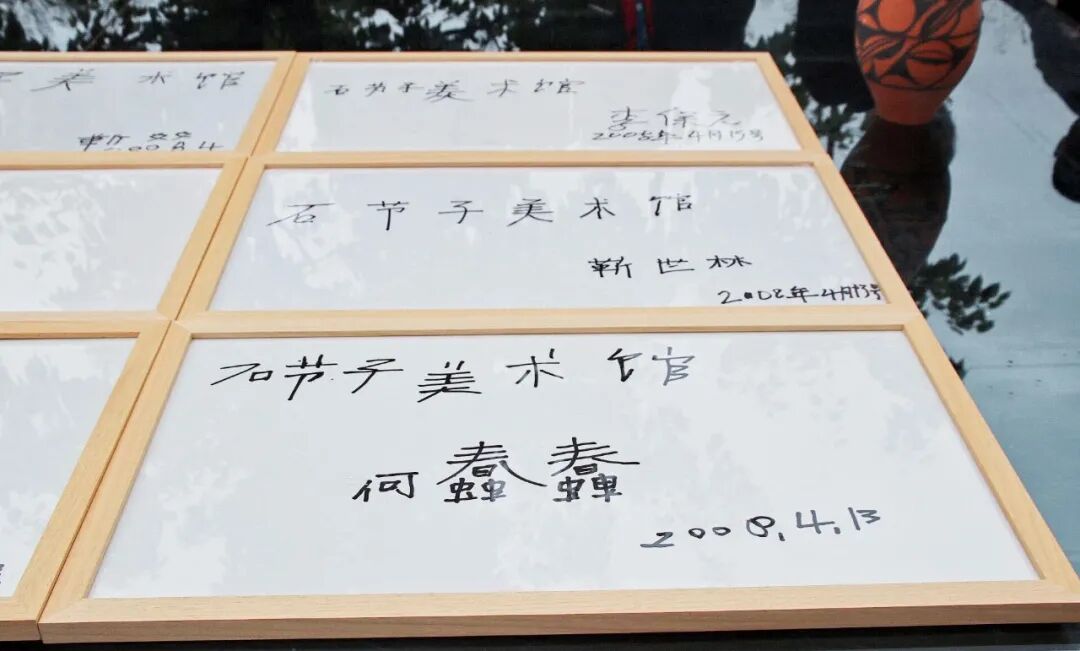 美术馆
石节子美术馆
李保元
2008年4月13号
石节子美术馆
靳世林
2008年4月13号
石节子美术馆
何蠢蠢
2008.4.13